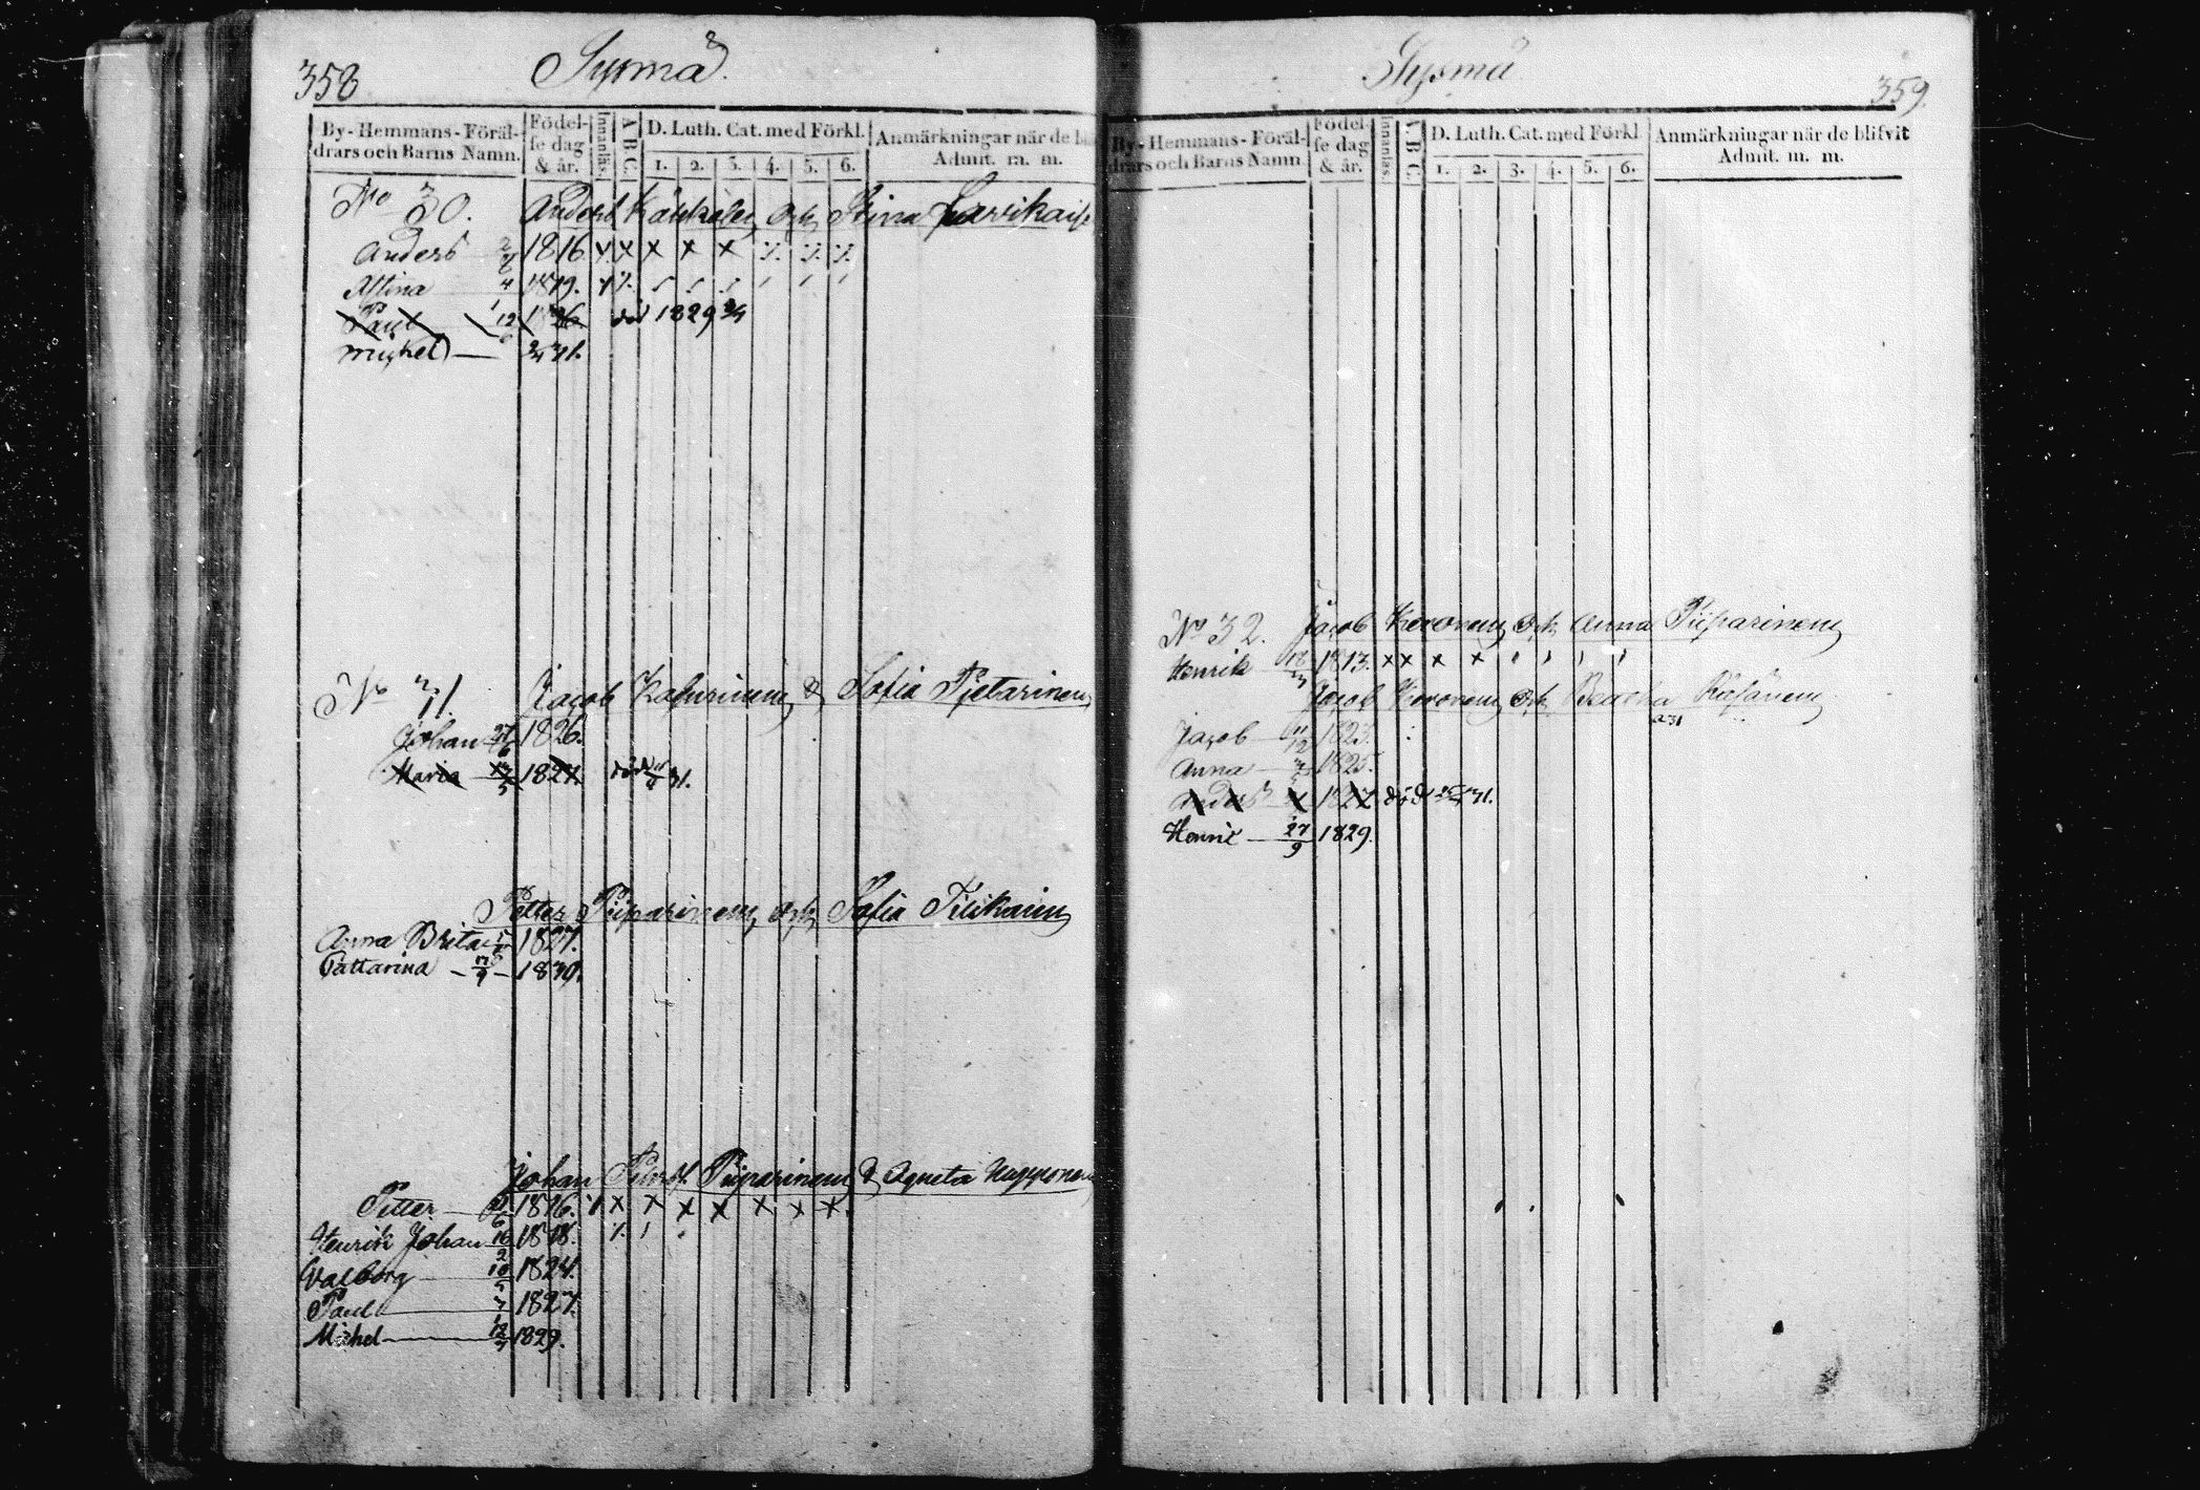 358
Sysmä.
By-Hemmans-Föräl-
drars och Barns Namn.
Födel-
se dag
& år.
Innanläs
A B C
D. Luth. Cat. med Förkl.
1. 2. 3. 4. 5. 6.
Anmärkningar när de bli
Admit. m. m.
No 30. Anders Käkkelen och Stina
Anders 1816 x x x x x
Stina 1819.
Paul 12 1826 död 1829
Michel 31.
No 31. Jacob & Sofia Pjetarinen
Johan 27/6 1826.
Maria 1827. död 31.
Petter Piiparinen och Sofia Tiikainen
Anna Brita 1827.
Cattarina 1830.
Johan Piiparinen & Agneta
Petter 1816. x x x x x x x
Henrik Johan 16/2 1818.
Walborg 10/5 1824.
Paul 1827.
Michel 1829.
Sysmä
359.
By-Hemmans-Föräl-
drars och Barns Namn
Födel-
se dag
& år.
Innanläs
A B C
D. Luth. Cat. med Förkl
1. 2. 3. 4. 5. 6.
Anmärkningar när de blifvit
Admit. m. m.
No 32. Jacob Kororen och Anna Piiparinen
Henrik 1813. x x x x
Jacob Kororen och Beatha Räsänen
Jacob 11/12 1823.
Anna 1825.
Anders 1827 död 31.
Henric 27/9 1829.